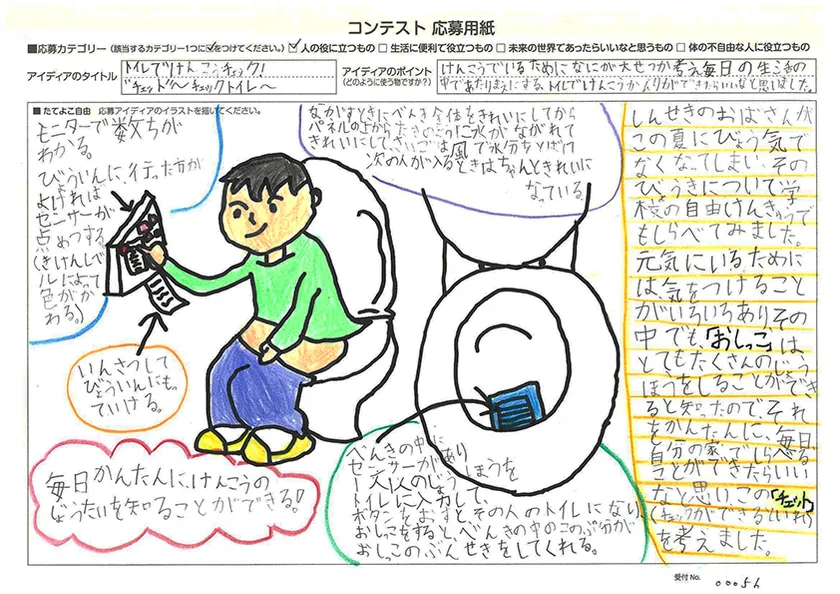 コンテスト 応募用紙
■応募カテゴリー（該当するカテゴリー1つに☑をつけてください。）☑人の役に立つもの □生活に便利で役立つもの □未来の世界であったらいいなと思うもの □体の不自由な人に役立つもの
アイディアのタイトル
トイレでけんこうチェック!
～チェットイレ～
アイディアのポイント
（どのように使う物ですか？）
けんこうでいるためになにが大せつか考え毎日の生活の
中であたりまえにする、トイレでけんこうかんりができたらいいなと思いました。
■たてよこ自由 応募アイディアのイラストを描いてください。
モニターで数ちが
わかる。
びょういんに、行った方が
よければ
センサーが
点めつする
(きけんレベ
ルによって
色がか
わる。)
いんさつして
びょういんにもっ
ていける。
毎日かんたんに、けんこうの
じょうたいを知ることができる!
ながすときにべんき全体をきれいにしてから
パネルの上からたきのように水がながれて
きれいにして、さいごは風で水分をとばす
次の人が入るときはちゃんときれいに
なっている。
べんきの中に
センサーがあり
1人1人のじょうほうを
トイレに入力して、
ボタンをおすとその人のトイレになり、
おしっこをすると、べんきの中のこのぶ分が
おしっこのぶんせきをしてくれる。
しんせきのおばさんが
この夏にびょう気で
なくなってしまい、その
びょうきについて学
校の自由けんきゅうで
もしらべてみました。
元気にいるために
は、気をつけること
がいろいろありその
中でも、「おしっこ」は
とてもたくさんのじょう
ほうをしることができ
ると知ったので、それ
をかんたんに、毎日、
自分の家でしらべる
ことができたらいい
なと思い、この「チェット」
(チェックができるといれ)
を考えました。
受付 No. 00056